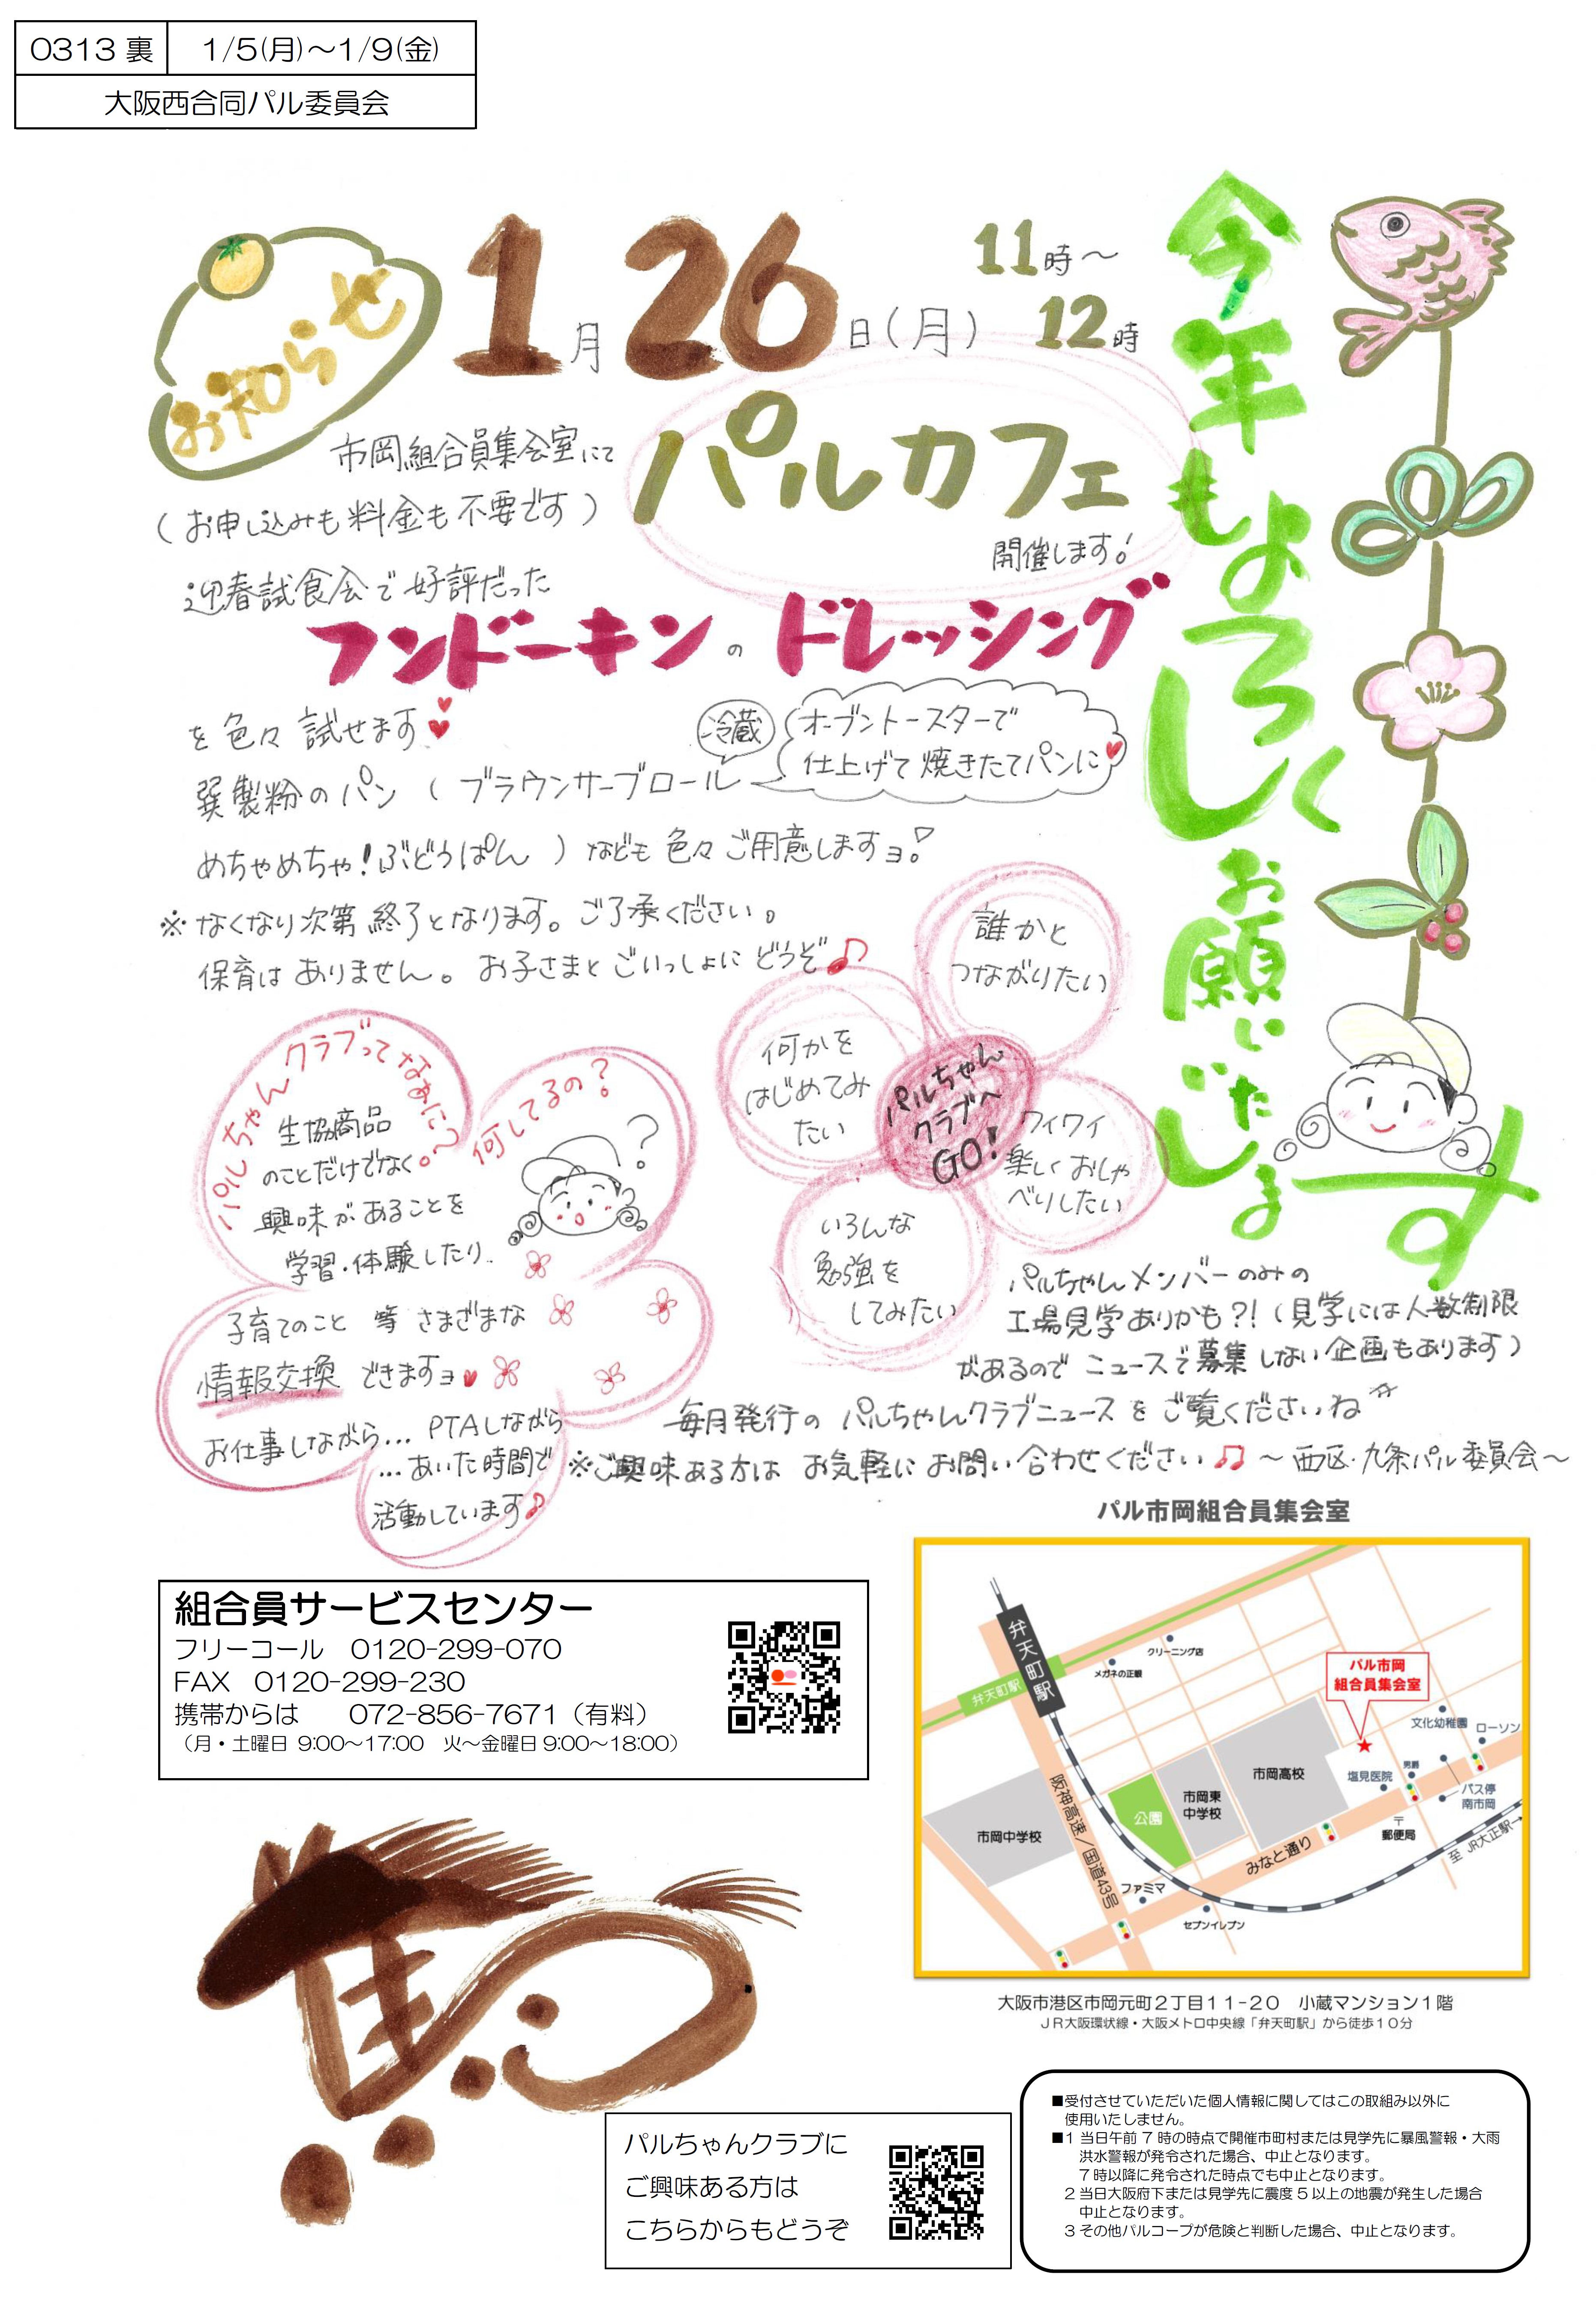 0313 裏 1/5(月)～1/9(金)
大阪西合同パル委員会
お知らせ
1月26日(月) 11時～
12時
市岡組合員集会室にて
(お申し込みも料金も不要です)
パルカフェ
開催します!
迎春試食会で好評だった
フンドーキンのドレッシング
を色々試せます
冷蔵
オーブントースターで
仕上げて焼きたてパンに
巽製粉のパン (ブラウンサーブロール
めちゃめちゃ!ぶどうぱん) なども色々ご用意しますョ!
※なくなり次第終了となります。ご了承ください。
保育はありません。お子さまとごいっしょにどうぞ♪
今年もよろしくお願いいたします
パルちゃんクラブってなぁに?
生協商品
のことだけでなく。
興味があることを
学習・体験したり..
何してるの?
?
子育てのこと 等 さまざまな
情報交換 できますョ
お仕事しながら... PTAしながら
...あいた時間で
活動しています♪
誰かと
つながりたい
何かを
はじめてみ
たい
パルちゃん
クラブへ
GO!
ワイワイ
楽しくおしゃ
べりしたい
いろんな
勉強を
してみたい
パルちゃんメンバーのみの
工場見学ありかも?!(見学には人数制限
があるのでニュースで募集しない企画もあります)
毎月発行のパルちゃんクラブニュースをご覧くださいね
※ご興味ある方は お気軽にお問い合わせください♫ ～西区・九条パル委員会～
組合員サービスセンター
フリーコール 0120-299-070
FAX 0120-299-230
携帯からは 072-856-7671(有料)
(月・土曜日 9:00～17:00 火～金曜日9:00～18:00)
パル市岡組合員集会室
弁天町駅
弁天町駅
クリーニング店
メガネの正眼
パル市岡
組合員集会室
文化幼稚園
ローソン
男爵
塩見医院
バス停
南市岡
〒
郵便局
市岡高校
市岡東
中学校
公園
市岡中学校
阪神高速／国道43号
みなと通り
至 JR大正駅→
ファミマ
セブンイレブン
大阪市港区市岡元町2丁目11-20 小蔵マンション1階
JR大阪環状線・大阪メトロ中央線「弁天町駅」から徒歩10分
パルちゃんクラブに
ご興味ある方は
こちらからもどうぞ
■受付させていただいた個人情報に関してはこの取組み以外に
使用いたしません。
■1 当日午前7時の時点で開催市町村または見学先に暴風警報・大雨
洪水警報が発令された場合、中止となります。
7時以降に発令された時点でも中止となります。
2 当日大阪府下または見学先に震度5以上の地震が発生した場合
中止となります。
3 その他パルコープが危険と判断した場合、中止となります。